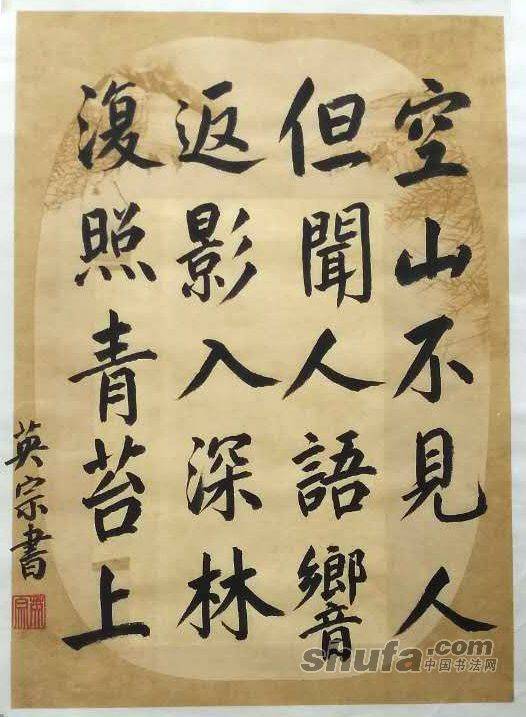 空山不見人
但聞人語響
返影入深林
復照青苔上
英宗書
shufa.com
中国书法网